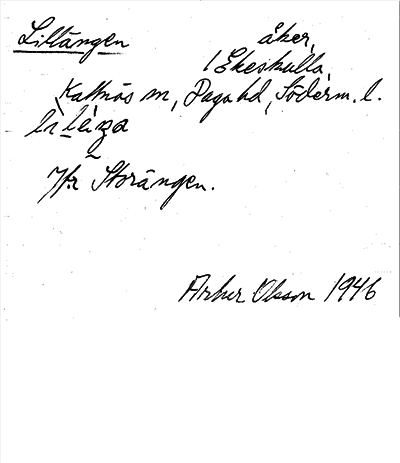 Lillängen åker,
1 Ekeskulla,
Kattnäs sn, Daga hd, Söderm. l.
Jfr Storängen.
Arthur Olsson 1946